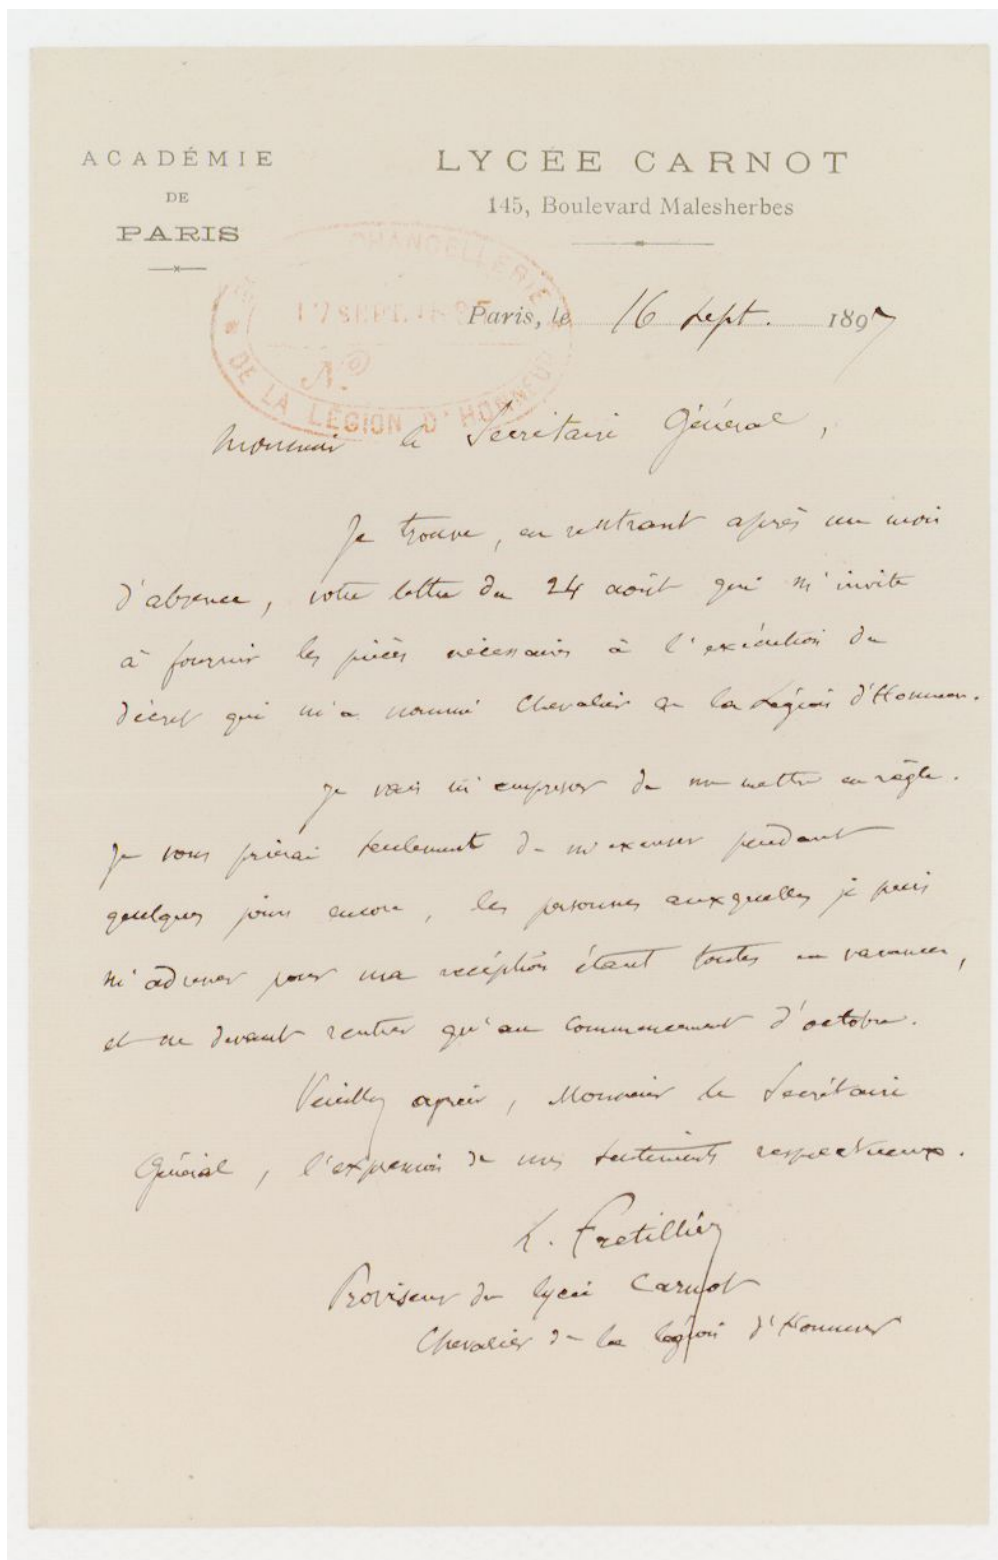 ACADÉMIE
DE
PARIS
LYCÉE CARNOT
145, Boulevard Malesherbes
CHANCELLERIE
17 SEPT. 1897
N°
DE LA LÉGION D'HONNEUR
Paris, le 16 Sept. 1897
Monsieur le Secrétaire Général,
Je trouve, en rentrant après un mois
d'absence, votre lettre du 24 août qui m'invite
à fournir les pièces nécessaires à l'exécution du
décret qui m'a nommé Chevalier de la Légion d'Honneur.
Je vais m'empresser de me mettre en règle.
Je vous prierai seulement de m'excuser pendant
quelques jours encore, les personnes auxquelles je puis
m'adresser pour ma réception étant toutes en vacances,
et ne devant rentrer qu'au commencement d'octobre.
Veuillez agréer, Monsieur le Secrétaire
Général, l'expression de mes sentiments respectueux.
L. Fretillier
Proviseur du lycée Carnot
Chevalier de la légion d'Honneur